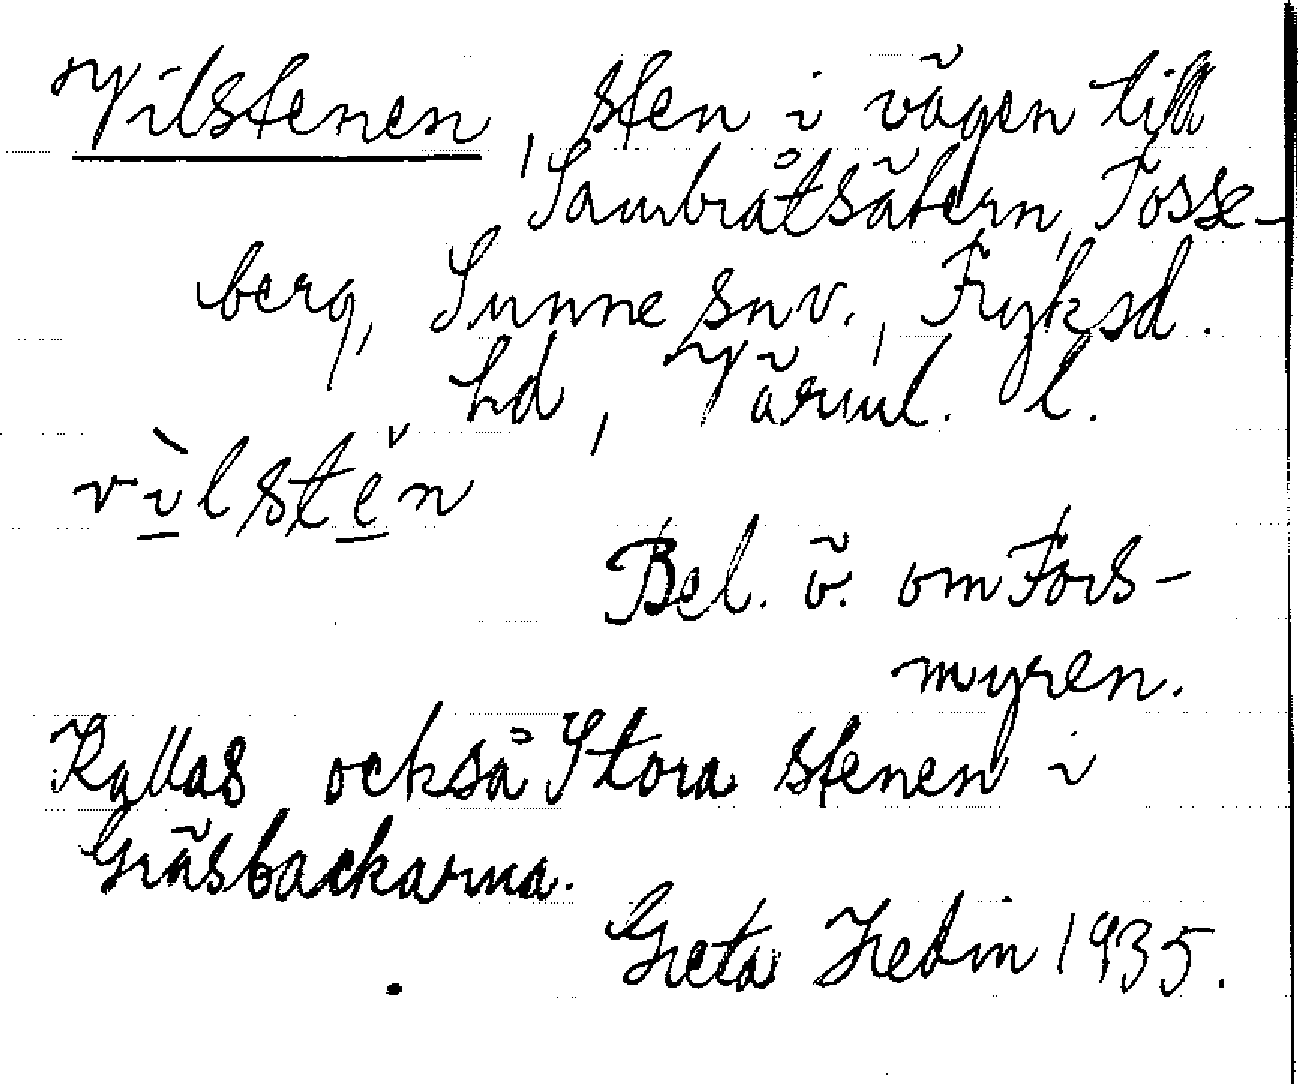 Vilstenen, sten i vägen till
Sambråtsätern, Fosse-
berg, Sunne snv., Fryksd.
hd, Värml. l.
vìlstěn
Bel. ö. om Fors-
myren.
Kallas också Stora stenen i
Gräsbackarna.
Greta Hedin 1935.